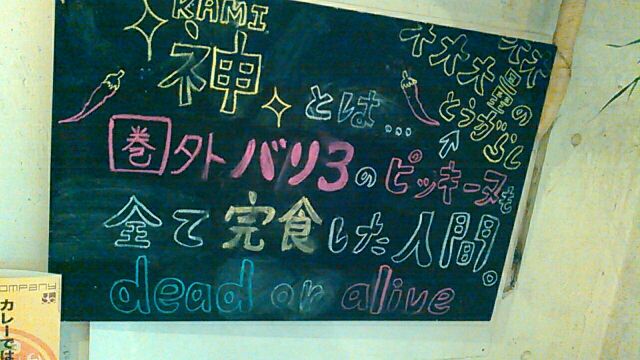 KAMI
神とは...
巻外バリ3のピッキーヌを
全て完食した人間。
dead or alive
大大大
量の
とうがらし
OMPANY
カレーでは